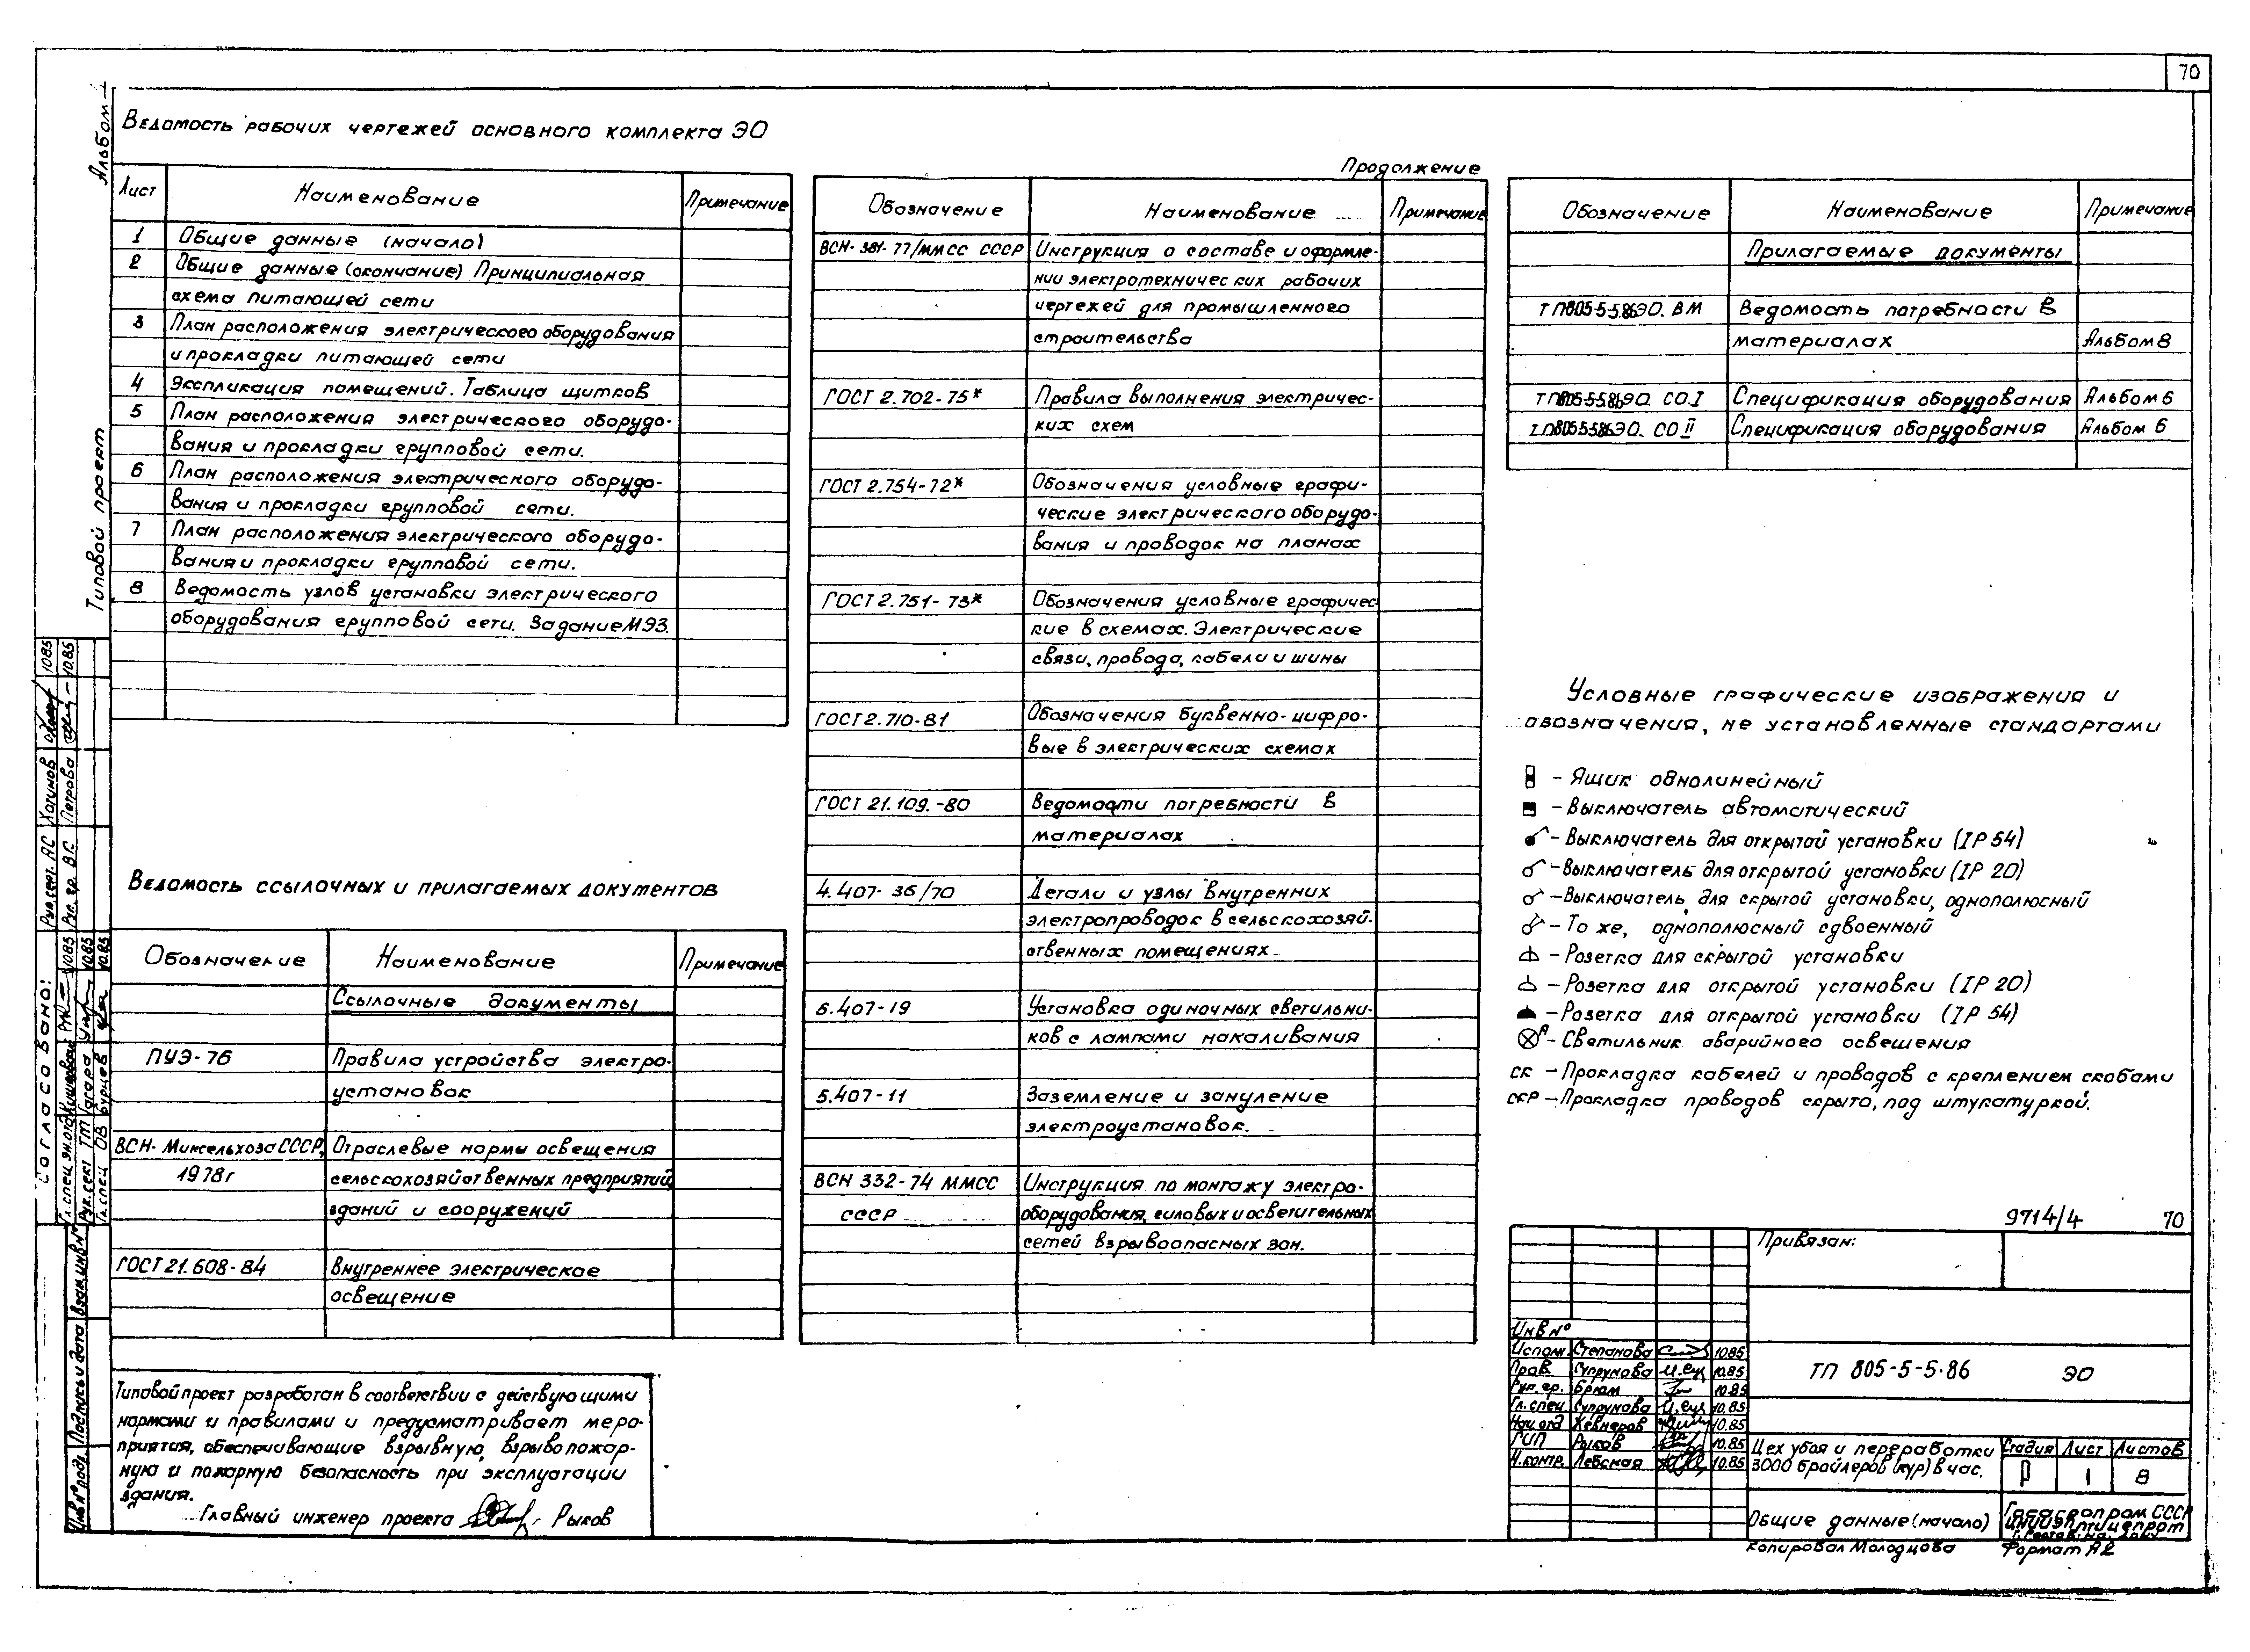 70
Альбом
Типовой проект
Ведомость рабочих чертежей основного комплекта ЭО
Лист Наименование Примечание
1 Общие данные (начало)
2 Общие данные (окончание) Принципиальная
схема питающей сети
3 План расположения электрического оборудования
и прокладки питающей сети
4 Экспликация помещений. Таблица щитков
5 План расположения электрического оборудо-
вания и прокладки групповой сети.
6 План расположения электрического оборудо-
вания и прокладки групповой сети.
7 План расположения электрического оборудо-
вания и прокладки групповой сети.
8 Ведомость узлов установки электрического
оборудования групповой сети. Задание МЭЗ.
Ведомость ссылочных и прилагаемых документов
Обозначение Наименование Примечание
Ссылочные документы
ПУЭ-76 Правила устройства электро-
установок
ВСН- Минсельхоза СССР, Отраслевые нормы освещения
1978г сельскохозяйственных предприятий,
зданий и сооружений
ГОСТ 21.608-84 Внутреннее электрическое
освещение
Типовой проект разработан в соответствии с действующими
нормами и правилами и предусматривает меро-
приятия, обеспечивающие взрывную, взрывопожар-
ную и пожарную безопасность при эксплуатации
здания.
Главный инженер проекта Рыков
Продолжение
Обозначение Наименование Примечание
ВСН-381-77/ММСС СССР Инструкция о составе и оформле-
нии электротехнических рабочих
чертежей для промышленного
строительства
ГОСТ 2.702-75* Правила выполнения электричес-
ких схем
ГОСТ 2.754-72* Обозначения условные графи-
ческие электрического оборудо-
вания и проводок на планах
ГОСТ 2.751-73* Обозначения условные графичес
кие в схемах. Электрические
связи, провода, кабели и шины
ГОСТ 2.710-81 Обозначения буквенно-цифро-
вые в электрических схемах
ГОСТ 21.109.-80 Ведомости потребности в
материалах
4.407-36/70 Детали и узлы внутренних
электропроводок в сельскохозяй-
ственных помещениях
5.407-19 Установка одиночных светильни-
ков с лампами накаливания
5.407-11 Заземление и зануление
электроустановок.
ВСН 332-74 ММСС Инструкция по монтажу электро-
СССР оборудования, силовых и осветительных
сетей взрывоопасных зон.
Обозначение Наименование Примечание
Прилагаемые документы
ТП805-5-5.86ЭО. ВМ Ведомость потребности в
материалах Альбом 8
ТП805-5-5.86ЭО. СО.I Спецификация оборудования Альбом 6
ТП805-5-5.86ЭО. СО II Спецификация оборудования Альбом 6
Условные графические изображения и
обозначения, не установленные стандартами
– Ящик однолинейный
– Выключатель автоматический
– Выключатель для открытой установки (IP 54)
– Выключатель для открытой установки (IP 20)
– Выключатель для скрытой установки, однополюсный
– То же, однополюсный сдвоенный
– Розетка для скрытой установки
– Розетка для открытой установки (IP 20)
– Розетка для открытой установки (IP 54)
А – Светильник аварийного освещения
СК – Прокладка кабелей и проводов с креплением скобами
СКР – Прокладка проводов скрыто, под штукатуркой.
9714/4 70
Привязан:
Инв №
Исполн. Степанова 10.85
Пров. Супрунова 10.85
Рук. гр. Брюм 10.85
Гл. спец Супрунова 10.85
Нач. отд Хевнеров 10.85
ГИП Рыков 10.85
Н. контр. Лебская 10.85
ТП 805-5-5.86 ЭО
Цех убоя и переработки
3000 бройлеров (кур) в час.
Стадия Лист Листов
Р 1 8
Общие данные (начало)
Госагропром СССР
ЦНИИЭПптицепром
г. Ростов-на-Дону
Копировал Молодцова Формат А2
Согласовано:
Рук. сект. АС Хатинов 10.85
Рук. гр. ВК Петрова 10.85
Гл. спец. эн. отд. 10.85
Рук. сект ТМ 10.85
Гл. спец ОВ Бурцев 10.85
Инв № подл. Подпись и дата Взам. инв №